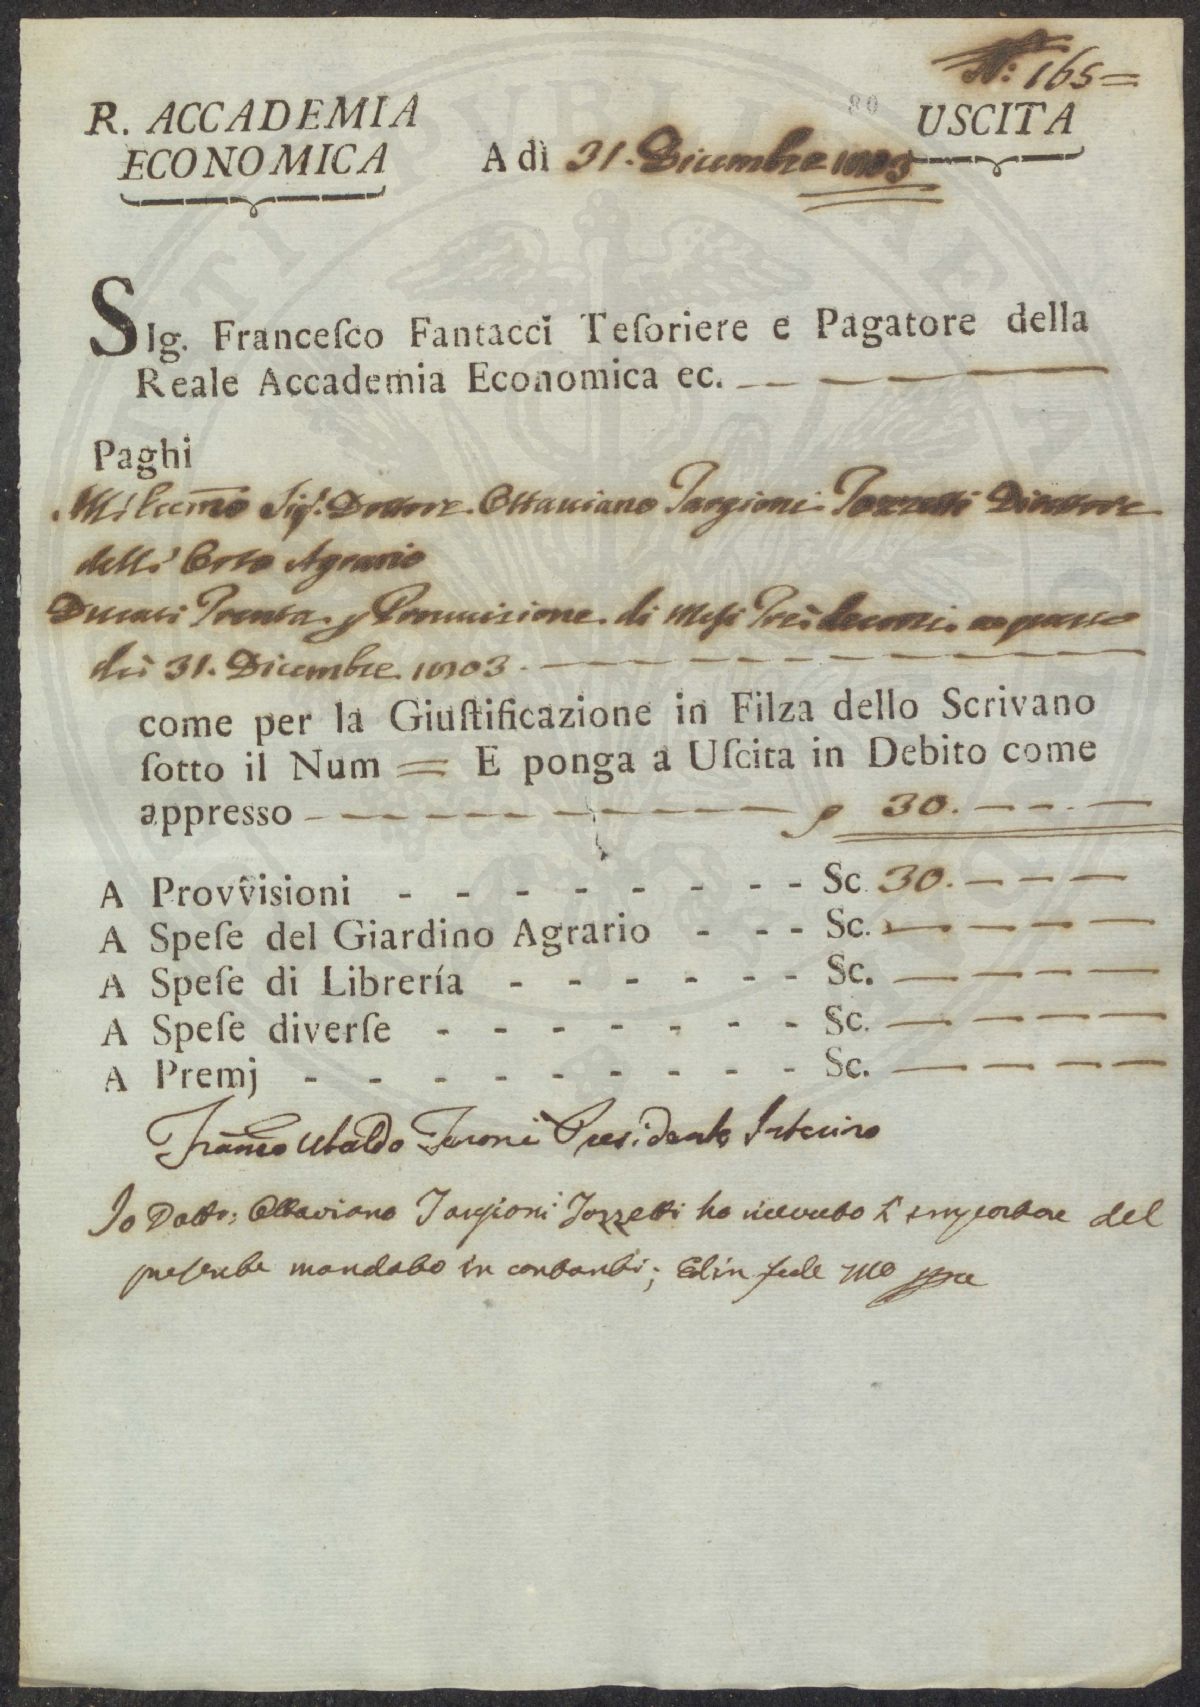 N.° 165=
80
R. ACCADEMIA
ECONOMICA
USCITA
A dì 31. Dicembre 1803
SIg. Franceſco Fantacci Teſoriere e Pagatore della
Reale Accademia Economica ec.
Paghi
Sig.r Dottore Ottaviano Targioni Tozzetti Direttore
dell' Orto Agrario
Ducati Trenta p Provvisione di Mesi Tre decorsi a tutto
dì 31. Dicembre 1803.
come per la Giuſtificazione in Filza dello Scrivano
ſotto il Num = E ponga a Uſcita in Debito come
appresso 30.
A Provviſioni - - - - - - - - Sc. 30.
A Speſe del Giardino Agrario - - - Sc.
A Speſe di Librería - - - - - - Sc.
A Speſe diverſe - - - - - - - Sc.
A Premj - - - - - - - - - Sc.
Ubaldo Feroni Presidente Interino
Io Dotto: Ottaviano Targioni Tozzetti ho ricevuto l' importare del
presente mandato in contanti; Ed in fede mo ppa